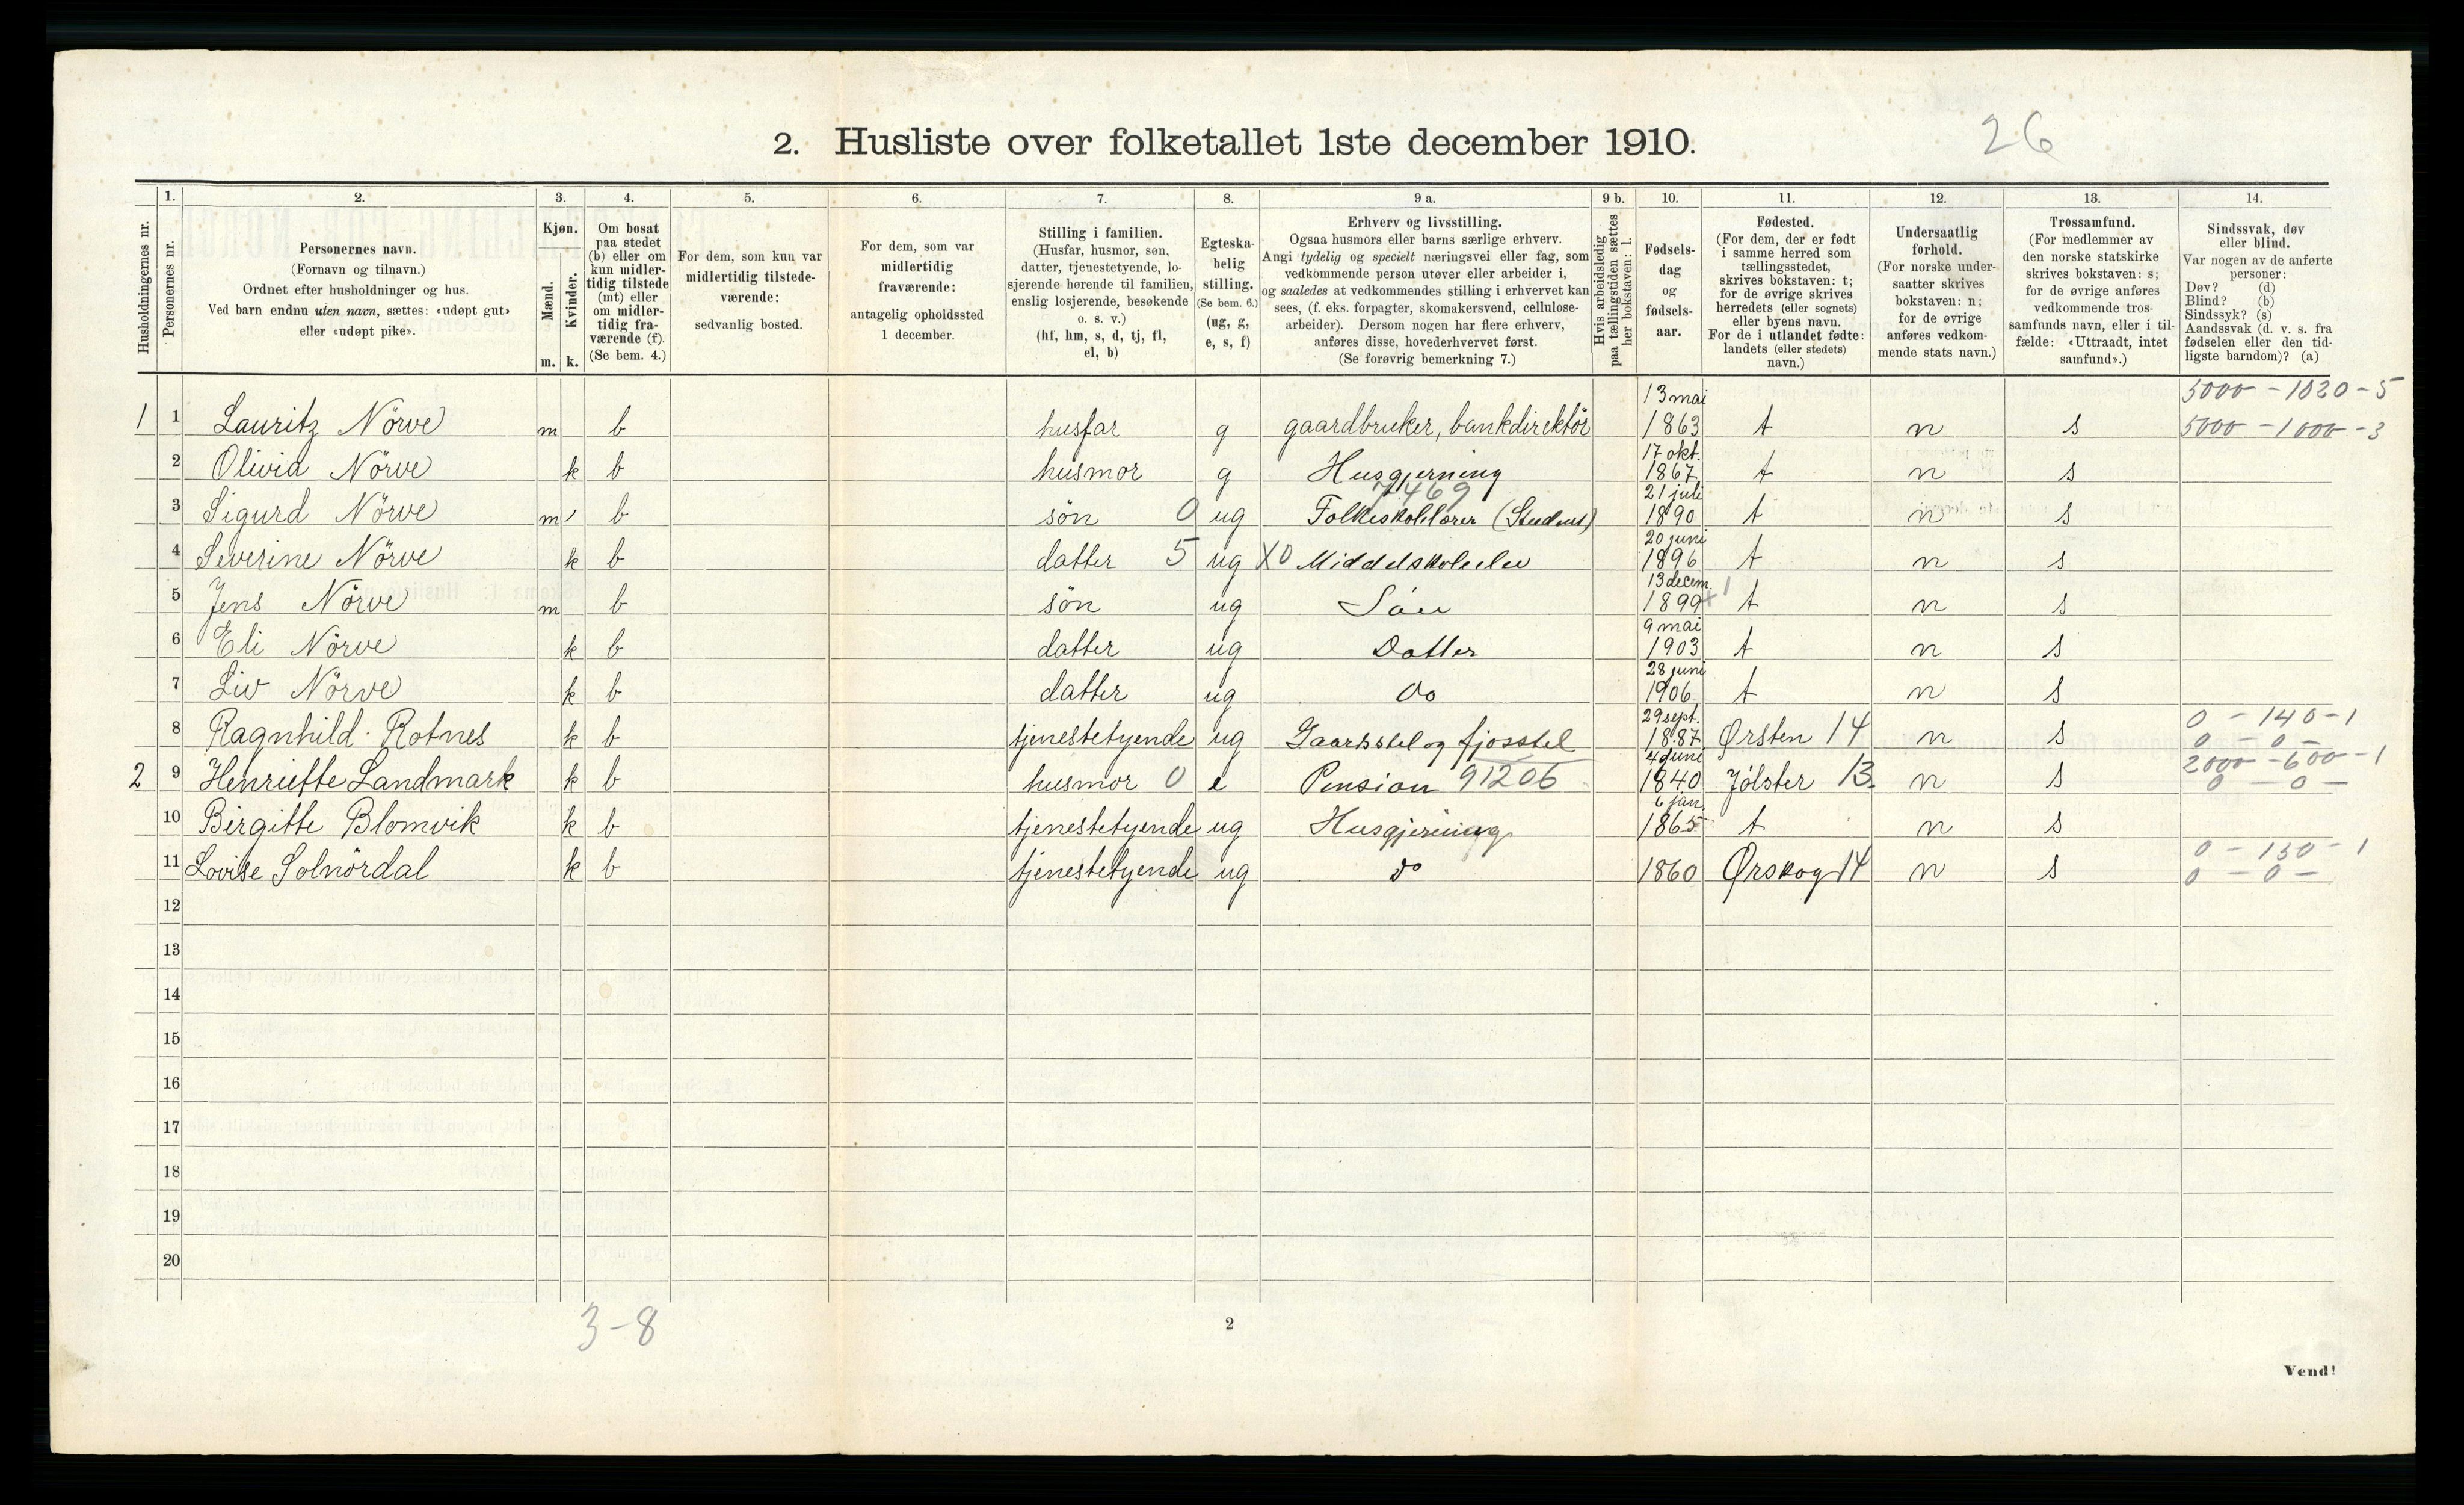 2. Husliste over folketallet 1ste december 1910.
26
Husholdningernes nr.
1. Personernes nr.
2. Personernes navn.
(Fornavn og tilnavn.)
Ordnet efter husholdninger og hus.
Ved barn endnu uten navn, sættes: «udøpt gut»
eller «udøpt pike».
3. Kjøn.
Mænd. m.
Kvinder. k.
4. Om bosat
paa stedet
(b) eller om
kun midler-
tidig tilstede
(mt) eller
om midler-
tidig fra-
værende (f).
(Se bem. 4.)
5. For dem, som kun var
midlertidig tilstede-
værende:
sedvanlig bosted.
6. For dem, som var
midlertidig
fraværende:
antagelig opholdssted
1 december.
7. Stilling i familien.
(Husfar, husmor, søn,
datter, tjenestetyende, lo-
sjerende hørende til familien,
enslig losjerende, besøkende
o. s. v.)
(hf, hm, s, d, tj, fl,
el, b)
8. Egteska-
belig
stilling.
(Se bem. 6.)
(ug, g,
e, s, f)
9 a. Erhverv og livsstilling.
Ogsaa husmors eller barns særlige erhverv.
Angi tydelig og specielt næringsvei eller fag, som
vedkommende person utøver eller arbeider i,
og saaledes at vedkommendes stilling i erhvervet kan
sees, (f. eks. forpagter, skomakersvend, cellulose-
arbeider). Dersom nogen har flere erhverv,
anføres disse, hovederhvervet først.
(Se forøvrig bemerkning 7.)
9 b. Hvis arbeidsledig
paa tællingstiden sættes
her bokstaven: l.
10. Fødsels-
dag
og
fødsels-
aar.
11. Fødested.
(For dem, der er født
i samme herred som
tællingsstedet,
skrives bokstaven: t;
for de øvrige skrives
herredets (eller sognets)
eller byens navn.
For de i utlandet fødte:
landets (eller stedets)
navn.)
12. Undersaatlig
forhold.
(For norske under-
saatter skrives
bokstaven: n;
for de øvrige
anføres vedkom-
mende stats navn.)
13. Trossamfund.
(For medlemmer av
den norske statskirke
skrives bokstaven: s;
for de øvrige anføres
vedkommende tros-
samfunds navn, eller i til-
fælde: «Uttraadt, intet
samfund».)
14. Sindssvak, døv
eller blind.
Var nogen av de anførte
personer:
Døv? (d)
Blind? (b)
Sindssyk? (s)
Aandssvak (d. v. s. fra
fødselen eller den tid-
ligste barndom)? (a)
13 mai 5000 - 1820 - 5
1 1 Lauritz Nörve m b husfar g gaardbruker, bankdirektör 1863 t n s 5000 - 1000 - 3
17 okt.
2 Olivia Nörve k b husmor g Husgjerning 1867 t n s
7469 21 juli
3 Sigurd Nörve m b sön 0 ug Folkeskolelærer (Student) 1890 t n s
20 juni
4 Severine Nörve k b datter 5 ug X0 Middelskoleelev 1896 t n s
13 decem.
5 Jens Nörve m b sön ug Sön 1899 t n s
9 mai
6 Eli Nörve k b datter ug Datter 1903 t n s
28 juni
7 Liv Nörve k b datter ug do 1906 t n s
29 sept. 0 - 140 - 1
8 Ragnhild Rotnes k b tjenestetyende ug Gaardsstel og fjosstel 1887 Ørsten 14 n s 0 - 0 -
4 juni 2000 - 600 - 1
2 9 Henriette Landmark k b husmor 0 e Pension 91206 1840 Jölster 13. n s 0 - 0 -
6 jan.
10 Birgitte Blomvik k b tjenestetyende ug Husgjerning 1865 t n s
0 - 130 - 1
11 Lovise Solnördal k b tjenestetyende ug do 1860 Ørskog 14 n s 0 - 0 -
12
13
14
15
16
17
18
19
20
3-8
2
Vend!